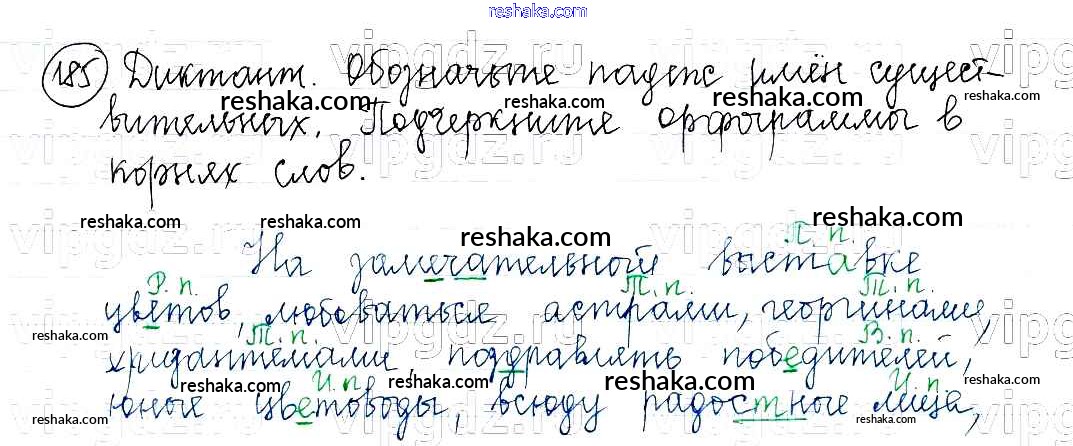 reshaka.com
185 Диктант. Обозначьте падеж имён сущест-
reshaka.com reshaka.com reshaka.com reshaka.com
вительных. Подчеркните орфограммы в
vipgdz.ru
корнях слов.
reshaka.com reshaka.com reshaka.com reshaka.com reshaka.com
П. п.
На замечательной выставке
Р. п. Т. п. Т. п.
цветов, любоваться астрами, георгинами,
reshaka.com reshaka.com reshaka.com reshaka.com
Т. п. В. п.
хризантемами, поздравлять победителей,
И. п. И. п.
юные цветоводы, всюду радостные лица,
reshaka.com reshaka.com reshaka.com reshaka.com